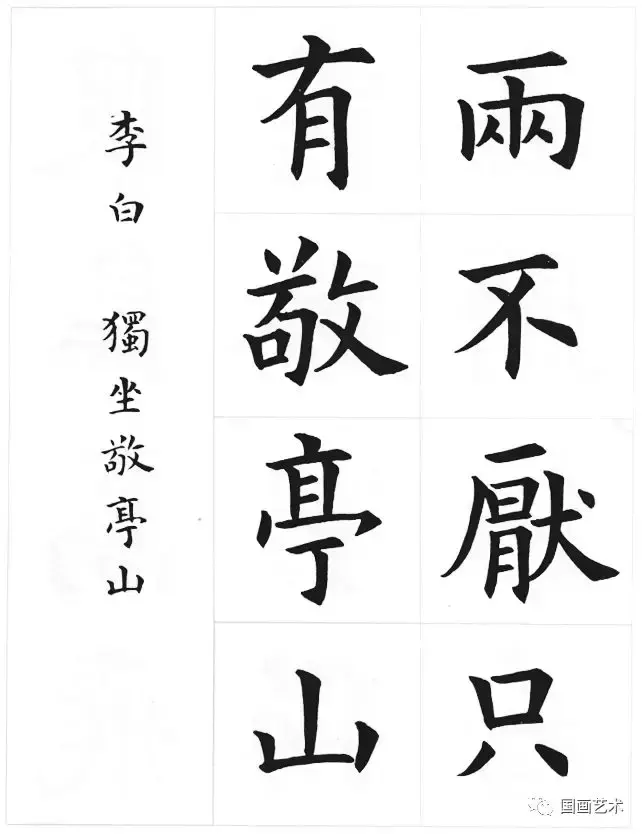 兩不厭只
有敬亭山
李白 獨坐敬亭山
国画艺术